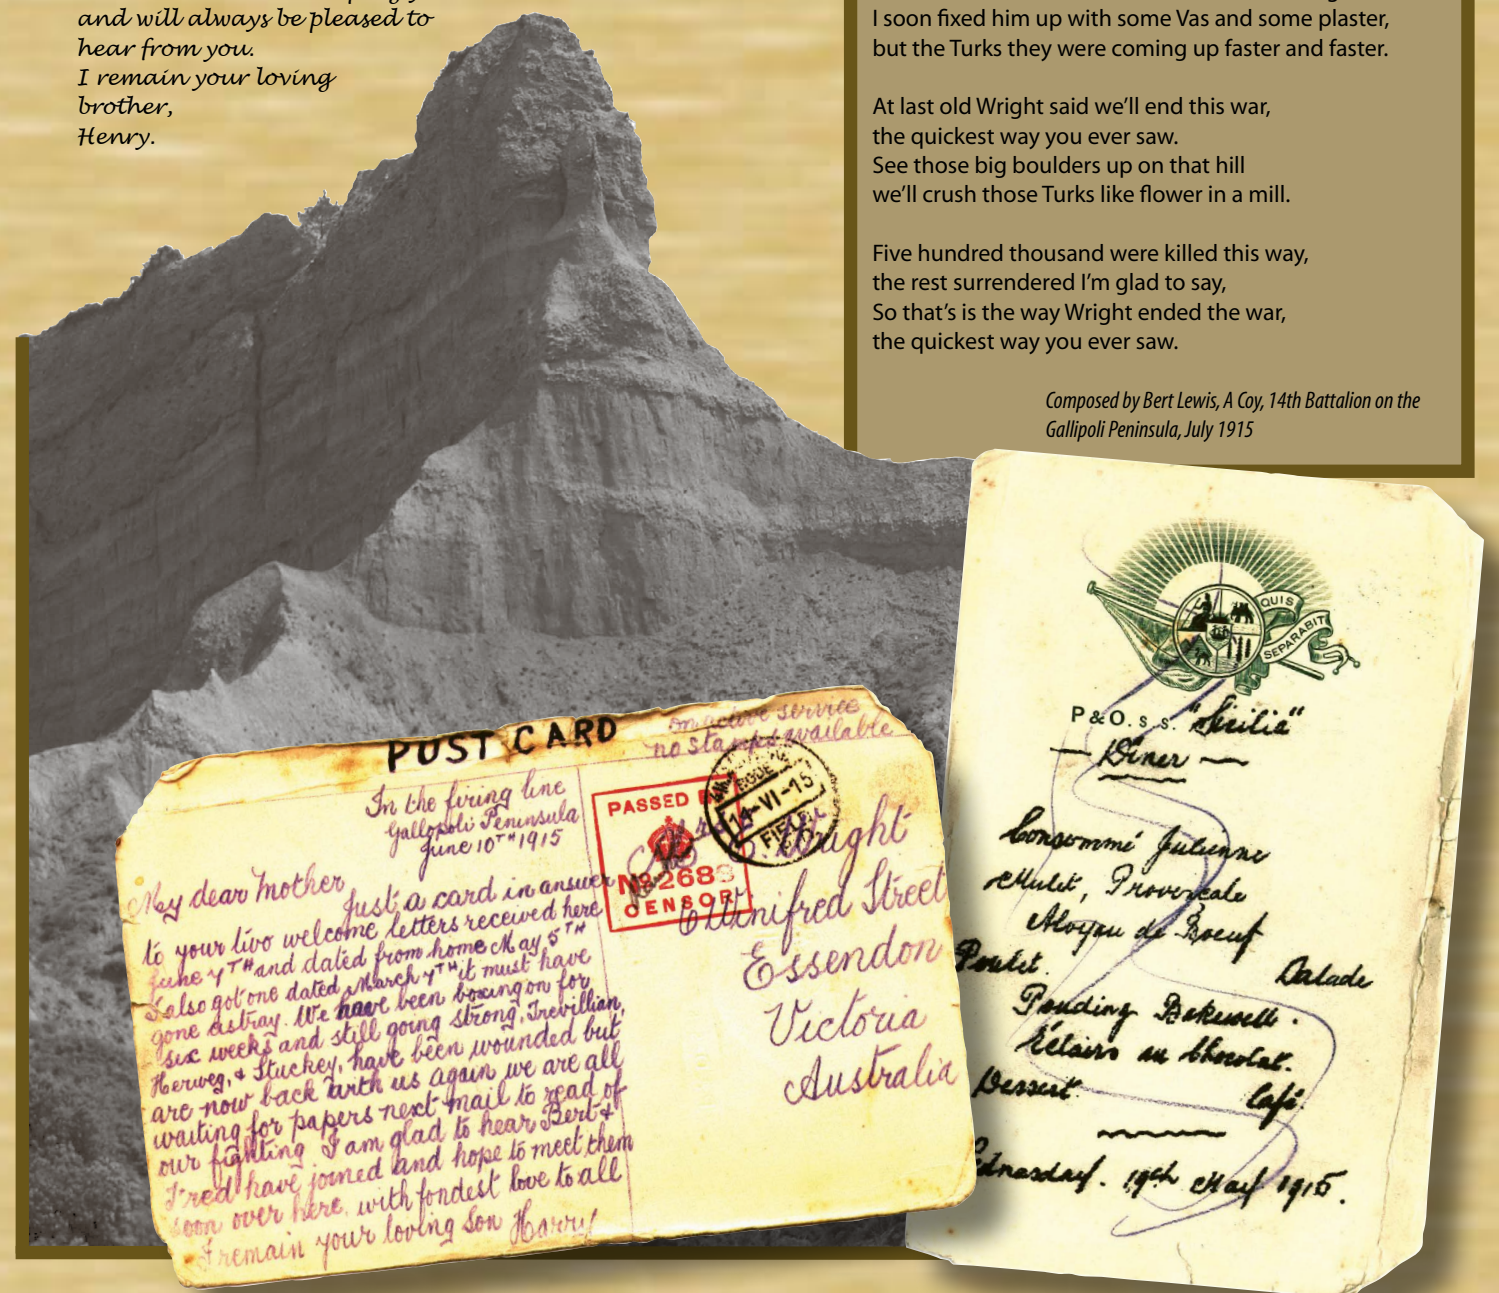 and will always be pleased to
hear from you.
I remain your loving
brother,
Henry.
I soon fixed him up with some Vas and some plaster,
but the Turks they were coming up faster and faster.
At last old Wright said we'll end this war,
the quickest way you ever saw.
See those big boulders up on that hill
we'll crush those Turks like flower in a mill.
Five hundred thousand were killed this way,
the rest surrendered I'm glad to say,
So that's is the way Wright ended the war,
the quickest way you ever saw.
Composed by Bert Lewis, A Coy, 14th Battalion on the
Gallipoli Peninsula, July 1915
POST CARD
on active service
no stamps available
In the firing line
Gallopoli Peninsula
June 10TH 1915
My dear Mother
Just a card in answer
to your two welcome letters received here
June 7TH and dated from home May 5TH
I also got one dated March 7TH it must have
gone astray. We have been boxing on for
six weeks and still going strong, Trevillian,
Herweg, & Stuckey, have been wounded but
are now back with us again we are all
waiting for papers next mail to read of
our fighting I am glad to hear Bert &
Fred have joined and hope to meet them
soon over here. with fondest love to all
I remain your loving Son Harry
PASSED
No 268
CENSOR
14-VI-15
FIELD
Wright
Winifred Street
Essendon
Victoria
Australia
QUIS
SEPARABIT
P & O. S. S. "Sicilia"
Diner
Consommé Julienne
Mulet, Provençale
Aloyau de Boeuf
Poulet. Salade
Pouding Bakewell.
Éclairs au Chocolat.
Dessert. Café.
19th May 1915.